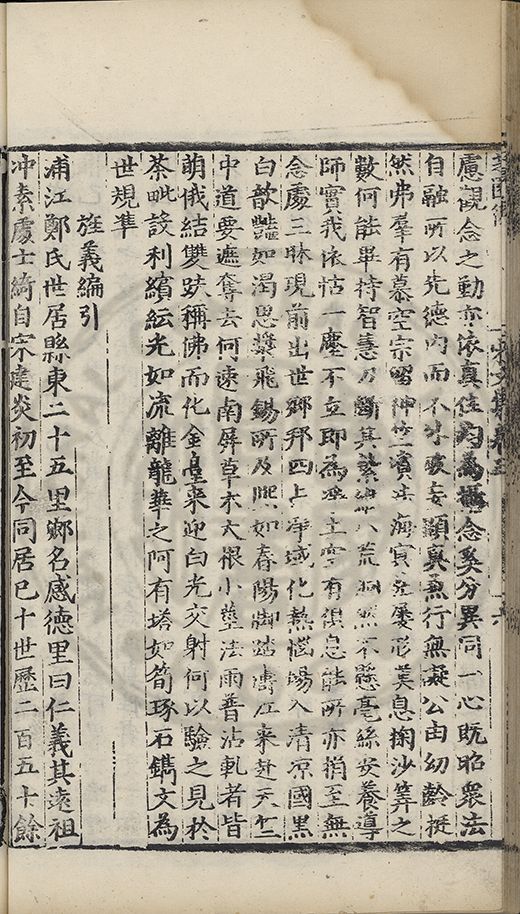 慮觀念之動亦依真住內為攝念奚分異同一心既昭衆法
自融所以先德內而不外破妄顯真兼行無礙公由幼齡挺
然弗羣有慕空宗
數何能畢持智慧刀斷其繫縛八荒洞然不懸毫絲安養導
師實我依怙一塵不立即為淨土空有俱息能所亦捐至無
念處三昧現前出世鄉邦四上淨域化熱惱場入清凉國黑
白歆豔如渴思漿飛錫所及熙如春陽御踏濤江來赴天竺
中道要遮奪去何速南屏草木大根小莖法雨普沾軌者皆
萌俄結雙趺稱佛而化金臺來迎白光交射何以驗之見於
荼毗設利繽紜光如流離龍華之阿有塔如筍琢石鐫文為
世規準
旌義編引
浦江鄭氏世居縣東二十五里鄉名感德里曰仁義其遠祖
冲素處士綺自宋建炎初至今同居已十世歷二百五十餘